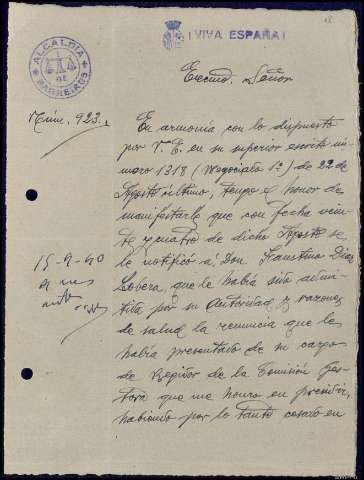 ¡VIVA ESPAÑA!
ALCALDIA DE BARREIROS
Excmo. Señor
Núm. 923.
En armonía con lo dispuesto
por V. E. en su superior escrito nú-
mero 1318 (Negociado 1º) de 22 de
Agosto último, tengo el honor de
manifestarle que con fecha vein-
te y cuatro de dicho Agosto se
le notificó a Don Faustino Díaz
Lovera, que le había sido admi-
tida por su Autoridad y razones
de salud la renuncia que le
había presentado de su cargo
de Regidor de la Comisión Ges-
tora que me honro en presidir,
habiendo por lo tanto cesado en
15-9-40